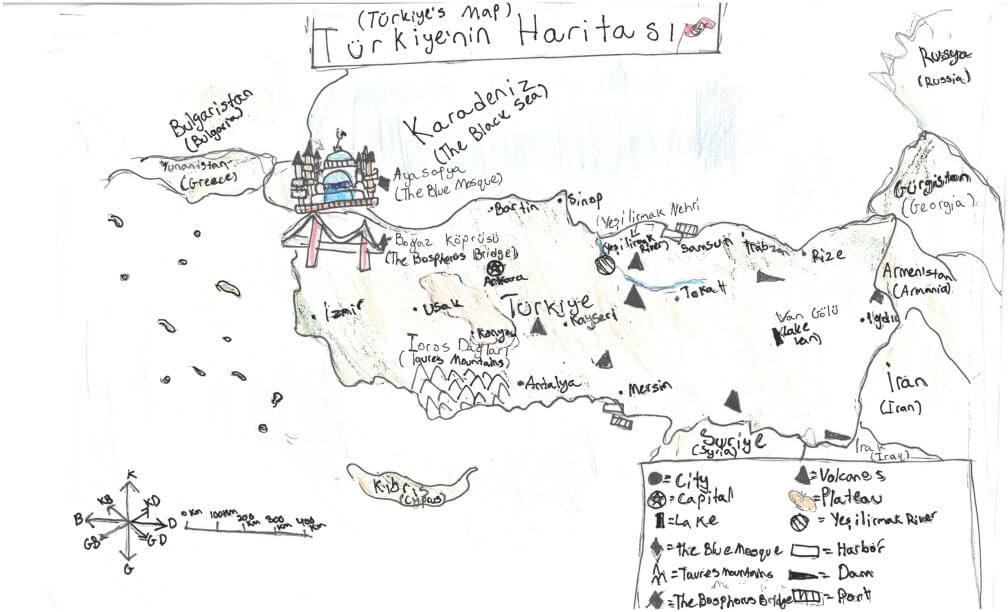 (Türkiye's Map)
Türkiye'nin Haritası
Russya
(Russia)
Bulgaristan
(Bulgaria)
Karadeniz
(The Black Sea)
Yunanistan
(Greece)
Ayasofya
(The Blue Mosque)
Gürgistan
(Georgia)
Bartin
Sinop
(Yeşilirmak Nehri
(Yeşilirmak
River)
Samsun
Trabzon
Rize
Boğaz Köprüsü
(The Bosphorus Bridge)
Ankara
Ermenistan
(Armania)
İzmir
Uşak
Türkiye
Kayseri
Tokatt
Van Gölü
(Lake
Van)
Iğdır
Konya
Toros Dağları
(Taures Mountains)
Antalya
Mersin
İran
(Iran)
Suriye
(Syria)
Irak
(Iraq)
Kıbrıs
(Cyprus)
K
KB
KD
B
D
GB
GD
G
0 Km
100 Km
200 Km
300 Km
400 Km
= City
= Capital
= Lake
= the Blue Mosque
= Taures Mountains
= The Bosphorus Bridge
= Volcanes
= Plateau
= Yeşilirmak River
= Harbor
= Dam
= Port